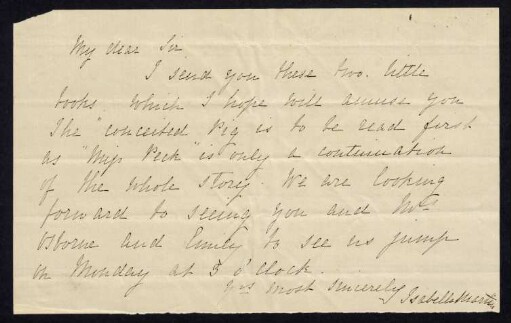 My dear Sir
I send you these two little
books. Which I hope will amuse you
The "conceited Pig is to be read first
as "Miss Peck" is only a continuation
of the whole story. We are looking
forward to seeing you and Mrs
Osborne and Emily to see us jump
on Monday at 3 o'clock.
Yrs most sincerely Isabella Martin